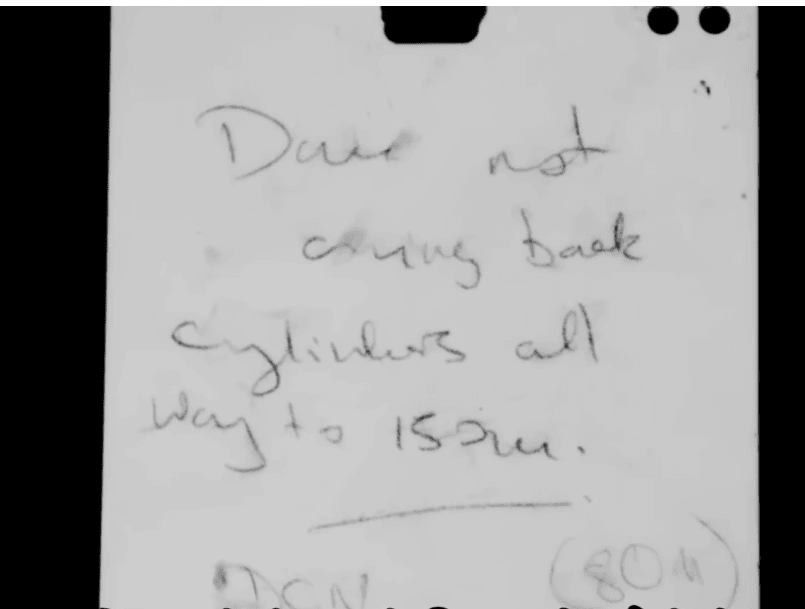 Dave not
coming back
cylinders all
way to 150m.
(80m)